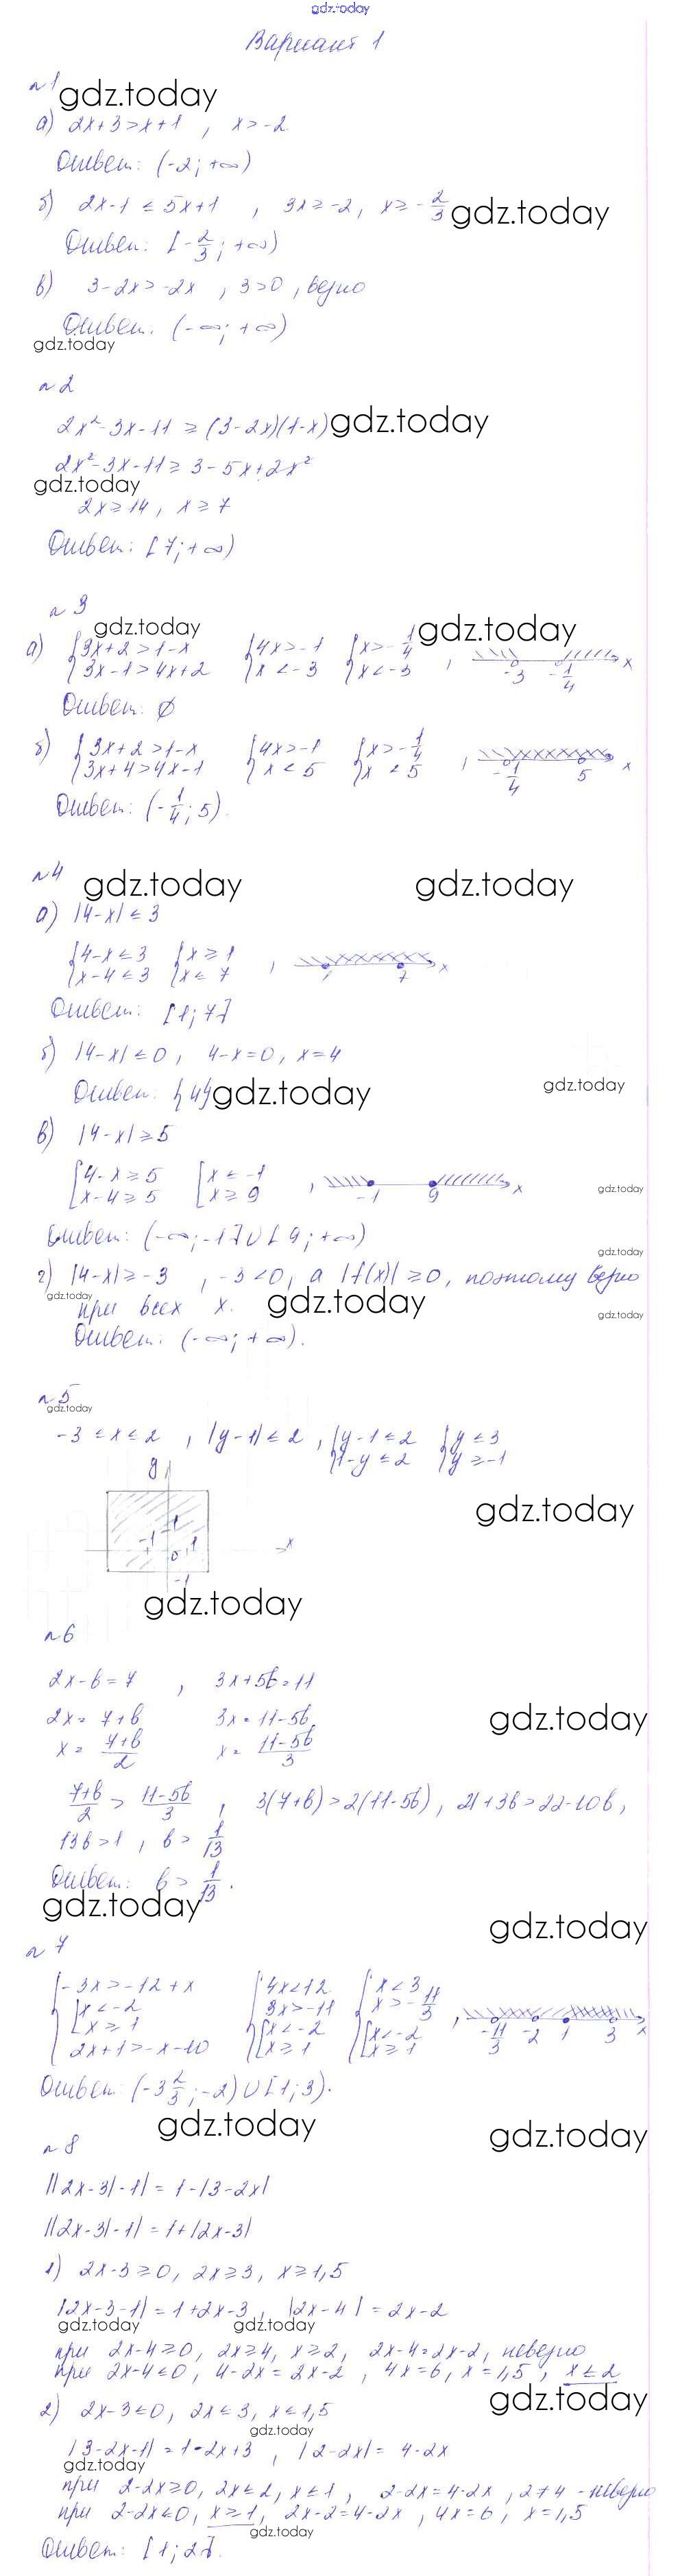 gdz.today
Вариант 1
№1 gdz.today
а) 2x+3>x+1 , x>-2
Ответ: (-2; +∞)
б) 2x-1 ≤ 5x+1 , 3x ≥ -2, x ≥ -2/3 gdz.today
Ответ: [-2/3; +∞)
в) 3-2x>-2x , 3>0, верно
Ответ: (-∞; +∞)
gdz.today
№2
2x²-3x-11 ≥ (3-2x)(1-x) gdz.today
2x²-3x-11 ≥ 3-5x+2x²
gdz.today
2x ≥ 14, x ≥ 7
Ответ: [7; +∞)
№3
gdz.today gdz.today
а) {3x+2>1-x {4x>-1 {x>-1/4
{3x-1>4x+2 {x<-3 {x<-3 , -3 -1/4 x
Ответ: ∅
б) {3x+2>1-x {4x>-1 {x>-1/4
{3x+4>4x-1 {x<5 {x<5 , -1/4 5 x
Ответ: (-1/4; 5).
№4 gdz.today gdz.today
а) |4-x| ≤ 3
{4-x ≤ 3 {x ≥ 1
{x-4 ≤ 3 {x ≤ 7 , 1 7 x
Ответ: [1; 7]
б) |4-x| ≤ 0, 4-x=0, x=4
Ответ: {4} gdz.today gdz.today
в) |4-x| ≥ 5
[4-x ≥ 5 [x ≤ -1
[x-4 ≥ 5 [x ≥ 9 , -1 9 x
gdz.today
Ответ: (-∞; -1]∪[9; +∞)
gdz.today
г) |4-x| ≥ -3 , -3<0, а |f(x)| ≥ 0, поэтому верно
gdz.today
при всех x. gdz.today gdz.today
Ответ: (-∞; +∞).
№5
gdz.today
-3 ≤ x ≤ 2 , |y-1| ≤ 2 , {y-1 ≤ 2 {y ≤ 3
{1-y ≤ 2 {y ≥ -1
y
gdz.today
1
-1 0 1 x
-1
gdz.today
№6
2x-b=7 , 3x+5b=11
2x=7+b 3x=11-5b gdz.today
x=(7+b)/2 x=(11-5b)/3
(7+b)/2 > (11-5b)/3 , 3(7+b)>2(11-5b), 21+3b>22-10b,
13b>1, b>1/13
Ответ: b>1/13.
gdz.today
gdz.today
№7
{-3x>-12+x {4x<12 {x<3
{[x<-2 {3x>-11 {x>-11/3
{[x ≥ 1 {[x<-2 {[x<-2 , -11/3 -2 1 3 x
{2x+1>-x-10 {[x ≥ 1 {[x ≥ 1
Ответ: (-3 2/3; -2)∪[1; 3).
gdz.today gdz.today
№8
||2x-3|-1|=1-|3-2x|
||2x-3|-1|=1+|2x-3|
1) 2x-3 ≥ 0, 2x ≥ 3, x ≥ 1,5
|2x-3-1|=1+2x-3, |2x-4|=2x-2
gdz.today gdz.today
при 2x-4 ≥ 0, 2x ≥ 4, x ≥ 2, 2x-4=2x-2, неверно
при 2x-4 ≤ 0, 4-2x=2x-2, 4x=6, x=1,5, x ≤ 2
gdz.today
2) 2x-3 ≤ 0, 2x ≤ 3, x ≤ 1,5
gdz.today
|3-2x-1|=1-2x+3, |2-2x|=4-2x
gdz.today
при 2-2x ≥ 0, 2x ≤ 2, x ≤ 1, 2-2x=4-2x, 2≠4 - неверно
при 2-2x<0, x ≥ 1, 2x-2=4-2x, 4x=6, x=1,5
gdz.today
Ответ: [1; 2].